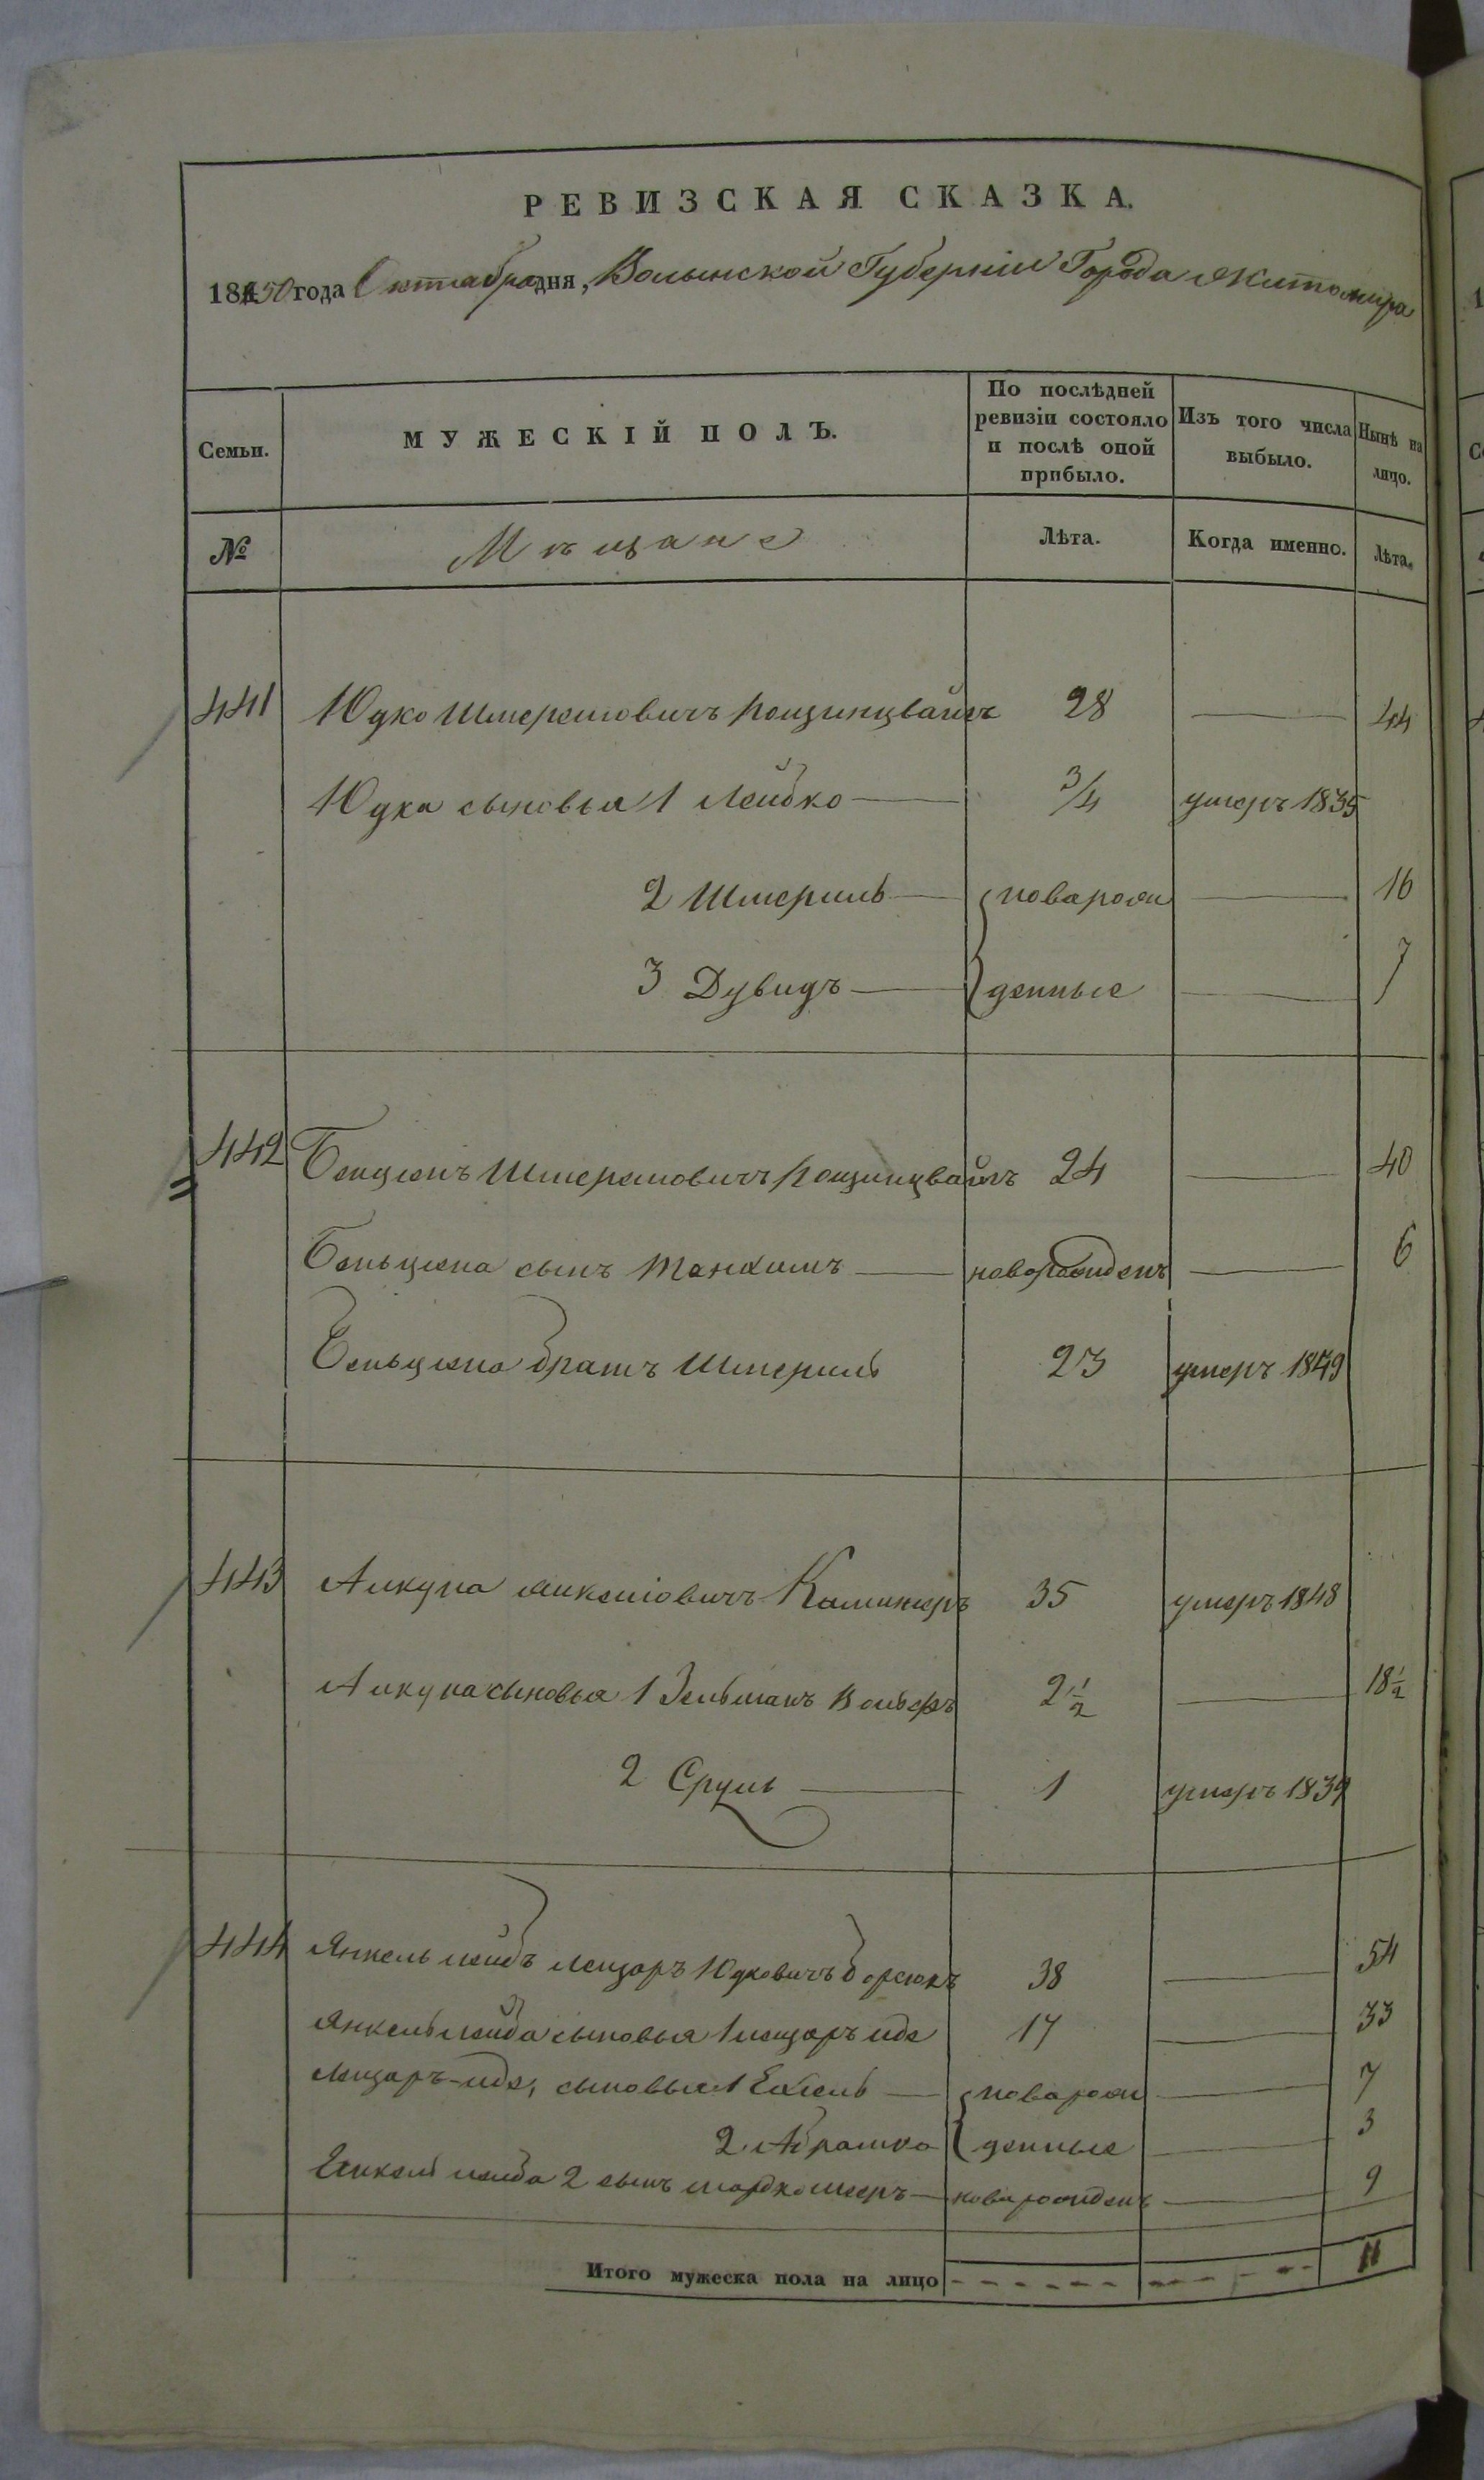 РЕВИЗСКАЯ СКАЗКА.
1850 года Октября дня, Волынской Губерніи Города Житомира
Семьи. МУЖЕСКІЙ ПОЛЪ. По послѣдней ревизіи состояло и послѣ оной прибыло. Изъ того числа выбыло. Нынѣ на лицо.
№ Мѣщане Лѣта. Когда именно. Лѣта.
441 Юдко Шмерелиовичъ 28 — 44
Юдка сыновья 1 Лейбко — 3/4 умеръ 1835
2 Шмериль — новорож — 16
3 Дувидъ — денные — 7
442 Бенціонъ Шмерелиовичъ 24 — 40
Беньціона сынъ Танхимъ — новорожденъ — 6
Беньціона братъ Шмериль 23 умеръ 1849
443 Янкеліовичъ Каминеръ 35 умеръ 1848
сыновья 1 Зельманъ Вольфъ 2 1/2 — 18 1/2
2 Сруль — 1 умеръ 1839
444 Янкель Лейбъ Лейзаръ Юдковичъ Борсюкъ 38 — 54
Янкель Лейба сыновья 1 Лейзаръ Иде 17 — 33
Лейзаръ-Иде, сыновья 1 — новорож — 7
2 Абрашко денные — 3
Янкель Лейба 2 сынъ Мордко Мееръ — новорожденъ — 9
Итого мужеска пола на лицо - - - - - - - - - - - 11